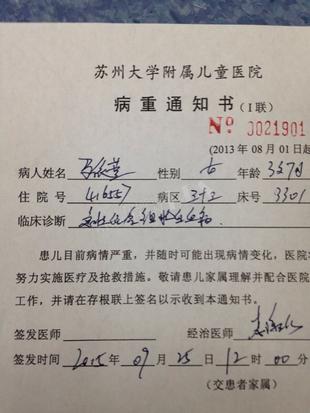 苏州大学附属儿童医院
病重通知书(I联)
Nº 0021901
(2013年08月01日起
病人姓名 性别 女 年龄 3岁7月
住院号 416557 病区 312 床号 3301
临床诊断
患儿目前病情严重,并随时可能出现病情变化,医院将
努力实施医疗及抢救措施。敬请患儿家属理解并配合医院
工作,并请在存根联上签名以示收到本通知书。
签发医师 经治医师
签发时间 2015年09月25日12时00分
(交患者家属)